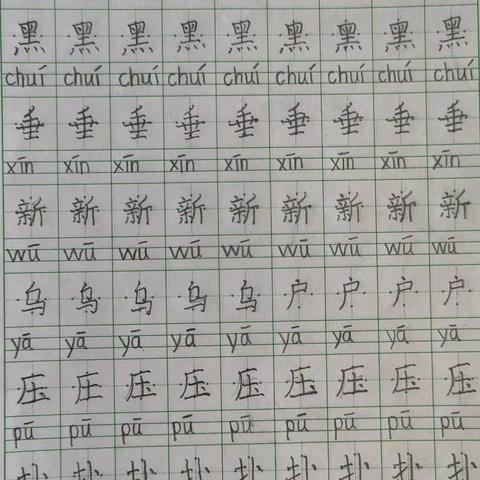 黑 黑 黑 黑 黑 黑 黑 黑 黑
chuí chuí chuí chuí chuí chuí chuí chuí chuí
垂 垂 垂 垂 垂 垂 垂 垂 垂
xīn xīn xīn xīn xīn xīn xīn xīn xīn
新 新 新 新 新 新 新 新 新
wū wū wū wū wū wū wū wū wū
乌 乌 乌 乌 乌 户 户 户 户
yā yā yā yā yā yā yā yā yā
压 压 压 压 压 压 压 压 压
pū pū pū pū pū pū pū pū pū
扑 扑 扑 扑 扑 扑 扑 扑 扑